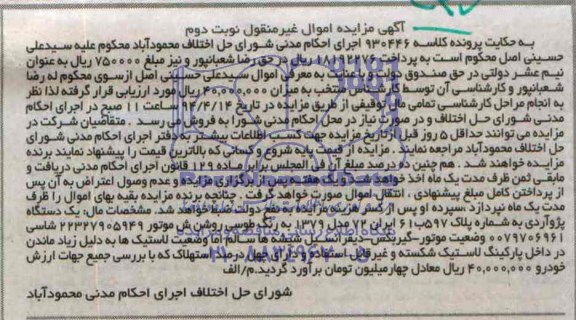 آگهی مزایده اموال غیرمنقول نوبت دوم
به حکایت پرونده کلاسه ۹۳۰۴۴۶ اجرای احکام مدنی شورای حل اختلاف محمودآباد محکوم علیه سیدعلی
حسینی اصل محکوم است به پرداخت ریال در حق رضا شعبانپور و نیز مبلغ ۷۵۰۰۰۰ ریال به عنوان
نیم عشر دولتی در حق صندوق دولت و با عنایت به معرفی اموال سیدعلی حسینی اصل ازسوی محکوم له رضا
شعبانپور و کارشناسی آن توسط کارشناس منتخب به میزان ۴۰,۰۰۰,۰۰۰ ریال مورد ارزیابی قرار گرفته لذا نظر
به انجام مراحل کارشناسی تمامی مال توقیفی از طریق مزایده در تاریخ ۹۴/۴/۱۴ ساعت ۱۱ صبح در اجرای احکام
مدنی شورای حل اختلاف و در صورت نیاز در محل احکام مدنی شورا به فروش می رسد . متقاضیان شرکت در
مزایده می توانند حداقل ۵ روز قبل از تاریخ مزایده جهت کسب اطلاعات بیشتر به دفتر اجرای احکام مدنی شورای
حل اختلاف محمودآباد مراجعه نمایند . مزایده از قیمت پایه شروع و کسانی که بالاترین قیمت را پیشنهاد نمایند برنده
مزایده خواهند شد . هم چنین ده درصد مبلغ آن فی المجلس برابر ماده ۱۲۹ قانون اجرای احکام مدنی دریافت و
مابقی ثمن ظرف مدت یک ماه اخذ خواهد شد و یک هفته پس از برگزاری مزایده و عدم وصول اعتراض به آن پس
از پرداختن کامل مبلغ پیشنهادی ، انتقال اموال صورت خواهد گرفت . چنانچه برنده مزایده بقیه بهای اموال را ظرف
مدت یک ماه نپردازد ،سپرده او پس از کسر هزینه مزایده به نفع دولت ضبط خواهد شد. مشخصات مال: یک دستگاه
پژوآردی به شماره پلاک ۵۹۷ب۶۱ ایران ۷۲ مدل ۱۳۷۹ به رنگ طوسی روشن ش موتور ۲۲۳۲۷۹۰۵۹۴۹ شاسی
۰۰۷۹۷۰۶۹۶۱ وضعیت موتور-گیربکس-دیفرانسیل شیشه ها سالم اما وضعیت لاستیک ها به دلیل زیاد ماندن
در داخل پارکینگ لاستیک شکسته و غیرقابل استفاده و دارای چهل درصد استهلاک که با بررسی جمیع جهات ارزش
خودرو ۴۰,۰۰۰,۰۰۰ ریال معادل چهارمیلیون تومان برآورد گردید.م/الف
شورای حل اختلاف اجرای احکام مدنی محمودآباد